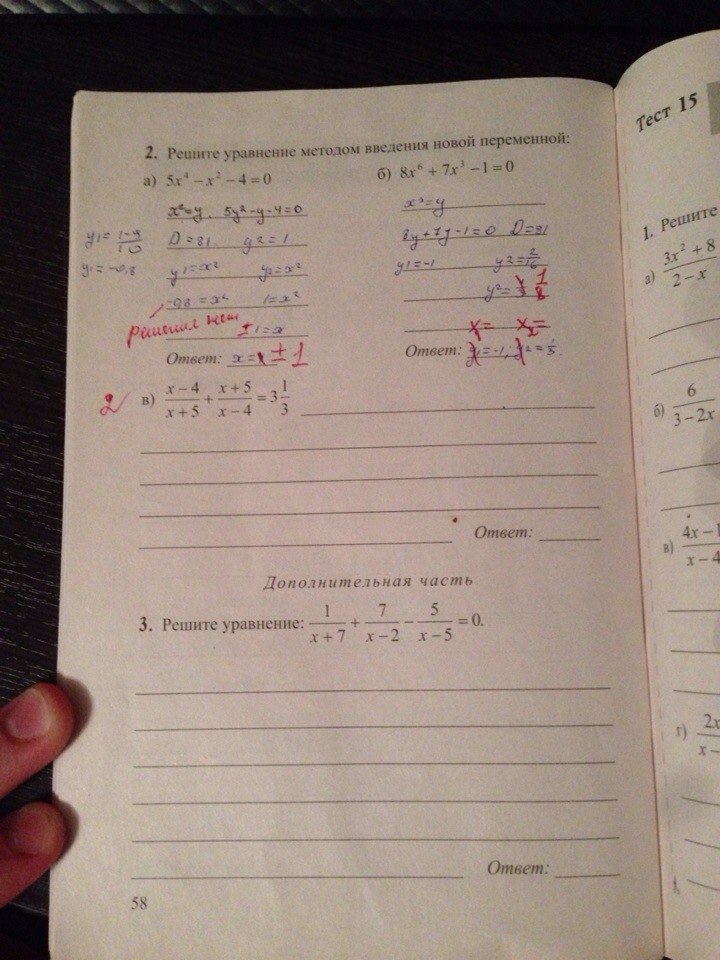 2. Решите уравнение методом введения новой переменной:
а) 5x⁴ − x² − 4 = 0
x²=y. 5y²-y-4=0
y₁ = (1-9)/10 D=81. y2=1
y₁=-0,8 y₁=x² y₂=x²
-0,8=x² 1=x²
решения нет ±1=x
Ответ: x= ±1
б) 8x⁶ + 7x³ − 1 = 0
x³=y
8y+7y-1=0 D=81
y₁=-1 y2=2/16
y²= 1/8
x₁= x₂=
Ответ: y₁=-1, y²=
2 в) (x−4)/(x+5) + (x+5)/(x−4) = 3 1/3
Ответ:
Дополнительная часть
3. Решите уравнение: 1/(x+7) + 7/(x−2) − 5/(x−5) = 0.
Ответ:
58
Тест 15
1. Решите
а) (3x² + 8)/(2 − x)
б) 6/(3 − 2x)
в) (4x − 1)/(x − 4)
г) 2x/(x −